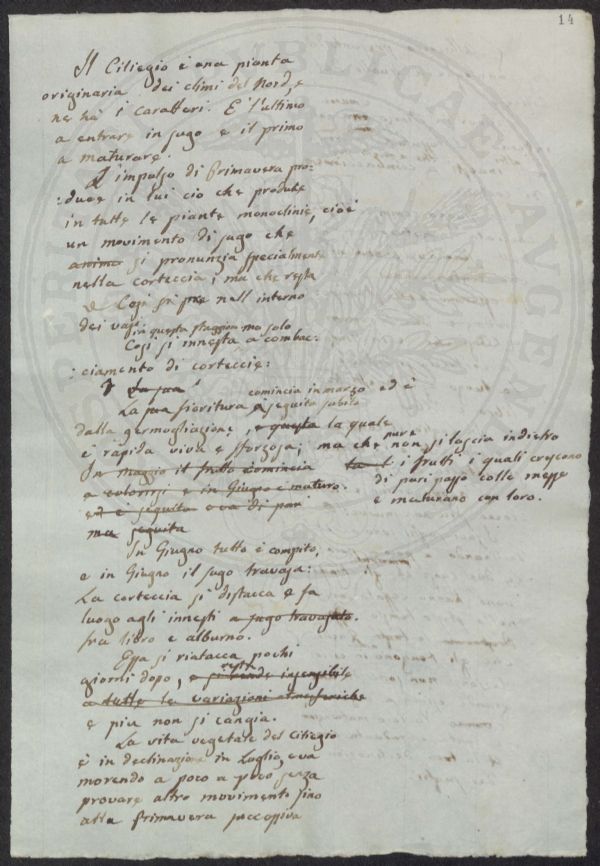 14
Il Ciliegio è una pianta
originaria dei climi del Nord, e
ne ha i caratteri. È l'ultimo
a entrare in sugo e il primo
a maturare.
L'impulso di Primavera pro:
:duce in lui cio che produce
in tutte le piante monoclinie, cioè
un movimento di sugo che
si pronunzia specialmente
nella corteccia; ma che resta
Cosi si nell'interno
dei vasi
in questa staggione ma solo
Cosi si innesta a combac:
:ciamento di corteccie:
La sua
comincia in marzo ed è
La sua fioritura è seguita subito
dalla germogliazione, e questa la quale
è rapida viva e sforzosa; ma che pure non si lascia indietro
In maggio il frutto comincia
i frutti i quali crescono
a colorirsi e in Giugno è maturo.
di pari passo colle messe
ed è seguita o va di pari
e maturano con loro.
ma seguita
In Giugno tutto è compito,
e in Giugno il sugo travasa:
La corteccia si distacca e fa
luogo agli innesti a sugo travasato.
fra libro e alburno.
Essa si riatacca pochi
resta
giorni dopo, e si rende insensibile
a tutte le variazioni atmosferiche
e piu non si cangia.
La vita vegetale del Ciliegio
è in declinazione in Luglio, e va
morendo a poco a poco senza
provare altro movimento fino
alla Primavera successiva